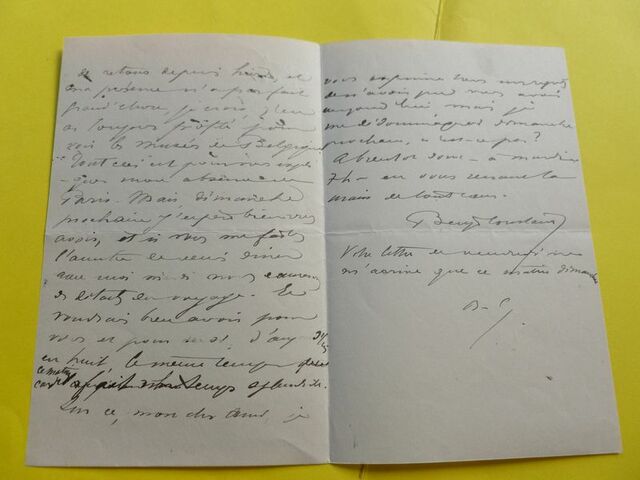 de retour depuis hier, et
ma présence n'a pas fait
grand'chose, je crois, j'en
ai toujours profité pour
voir les musées de Belgique
Tout ceci est pour vous expli
-quer mon absence de
Paris. Mais dimanche
prochain j'espère bien vous
avoir, et si vous me faites
l'amitié de venir dîner
avec moi mardi nous causerons
de détails de voyage. Je
voudrais bien avoir pour
vous et pour moi. d'auj
en huit le même temps
Sur ce, mon cher ami, je
vous exprime tous mes regrets
de n'avoir pu vous avoir
aujourd'hui mais je
me dédommagerai dimanche
prochain, n'est-ce pas?
A bientôt donc - à mardi
7h - en vous serrant la
main de tout cœur.
Benj Constant
Votre lettre de vendredi ne
m'arrive que ce matin dimanche
B. C.